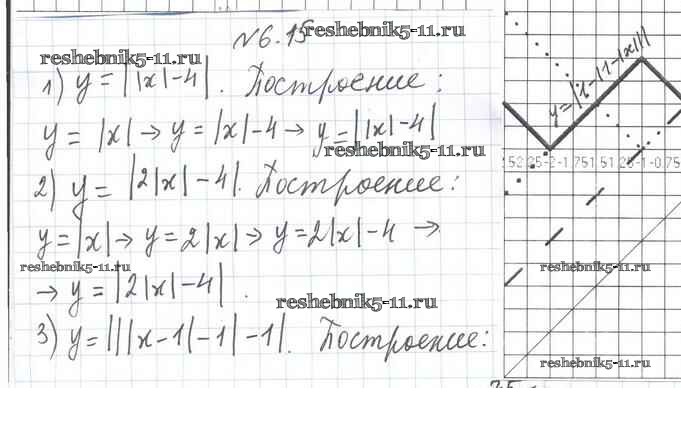 №6.15
reshebnik5-11.ru
reshebnik5-11.ru
1) y = ||x|-4|. Построение:
y = |x| → y = |x|-4 → y = ||x|-4|
reshebnik5-11.ru
2) y = |2|x|-4|. Построение:
y = |x| → y = 2|x| → y = 2|x|-4 →
reshebnik5-11.ru
→ y = |2|x|-4|.
reshebnik5-11.ru
3) y = |||x-1|-1|-1|. Построение:
y=|1-|1-|x|||
reshebnik5-11.ru
reshebnik5-11.ru